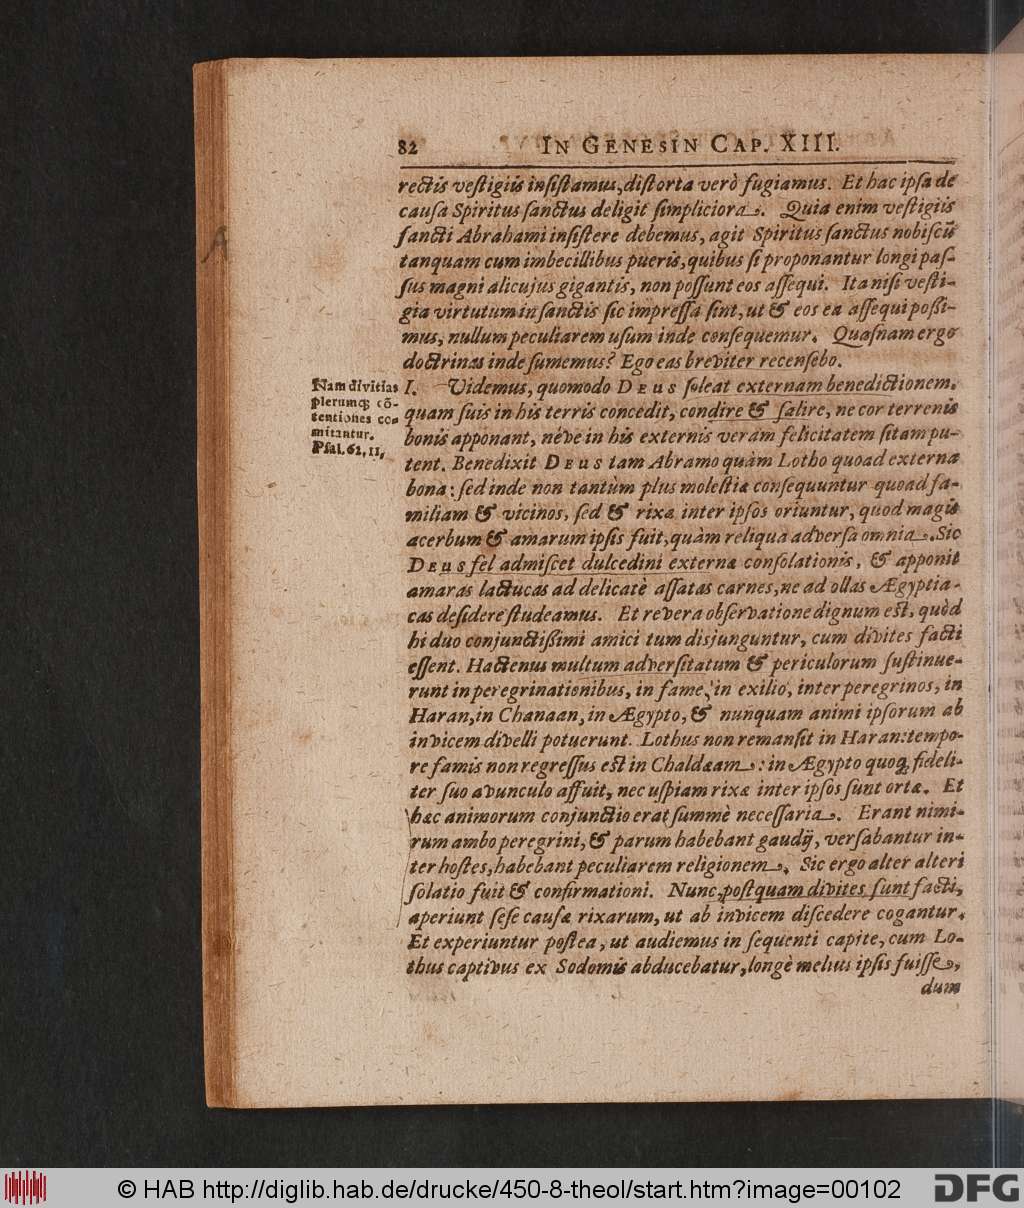 82 IN GENESIN CAP. XIII.
rectis vestigiis insistamus, distorta verò fugiamus. Et hac ipsa de
causa Spiritus sanctus deligit simpliciora. Quia enim vestigiis
sancti Abrahami insistere debemus, agit Spiritus sanctus nobiscũ
tanquam cum imbecillibus pueris, quibus si proponantur longi pas-
sus magni alicujus gigantis, non possunt eos assequi. Ita nisi vesti-
gia virtutum in sanctis sic impressa sint, ut & eos ea assequi possi-
mus, nullum peculiarem usum inde consequemur. Quasnam ergo
doctrinas inde sumemus? Ego eas breviter recensebo.
Nam divitias
plerumq; cõ-
tentiones co-
mitantur.
Psal. 62, 11,
I. Videmus, quomodo DEUS soleat externam benedictionem,
quam suis in his terris concedit, condire & salire, ne cor terrenis
bonis apponant, néve in his externis veram felicitatem sitam pu-
tent. Benedixit DEUS tam Abramo quàm Lotho quoad externa
bona: sed inde non tantùm plus molestiæ consequuntur quoad fa-
miliam & vicinos, sed & rixæ inter ipsos oriuntur, quod magis
acerbum & amarum ipsis fuit, quàm reliqua adversa omnia. Sic
DEUS fel admiscet dulcedini externæ consolationis, & apponit
amaras lactucas ad delicatè assatas carnes, ne ad ollas Ægyptia-
cas desidere studeamus. Et revera observatione dignum est, quòd
hi duo conjunctissimi amici tum disjunguntur, cum divites facti
essent. Hactenus multum adversitatum & periculorum sustinue-
runt in peregrinationibus, in fame, in exilio, inter peregrinos, in
Haran, in Chanaan, in Ægypto, & nunquam animi ipsorum ab
invicem divelli potuerunt. Lothus non remansit in Haran: tempo-
re famis non regressus est in Chaldæam: in Ægypto quoq; fideli-
ter suo avunculo affuit, nec uspiam rixæ inter ipsos sunt ortæ. Et
hæc animorum conjunctio erat summè necessaria. Erant nimi-
rum ambo peregrini, & parum habebant gaudij, versabantur in-
ter hostes, habebant peculiarem religionem. Sic ergo alter alteri
solatio fuit & confirmationi. Nunc, postquam divites sunt facti,
aperiunt sese causæ rixarum, ut ab invicem discedere cogantur.
Et experiuntur postea, ut audiemus in sequenti capite, cum Lo-
thus captivus ex Sodomis abducebatur, longè melius ipsis fuisse,
dum
© HAB http://diglib.hab.de/drucke/450-8-theol/start.htm?image=00102
DFG